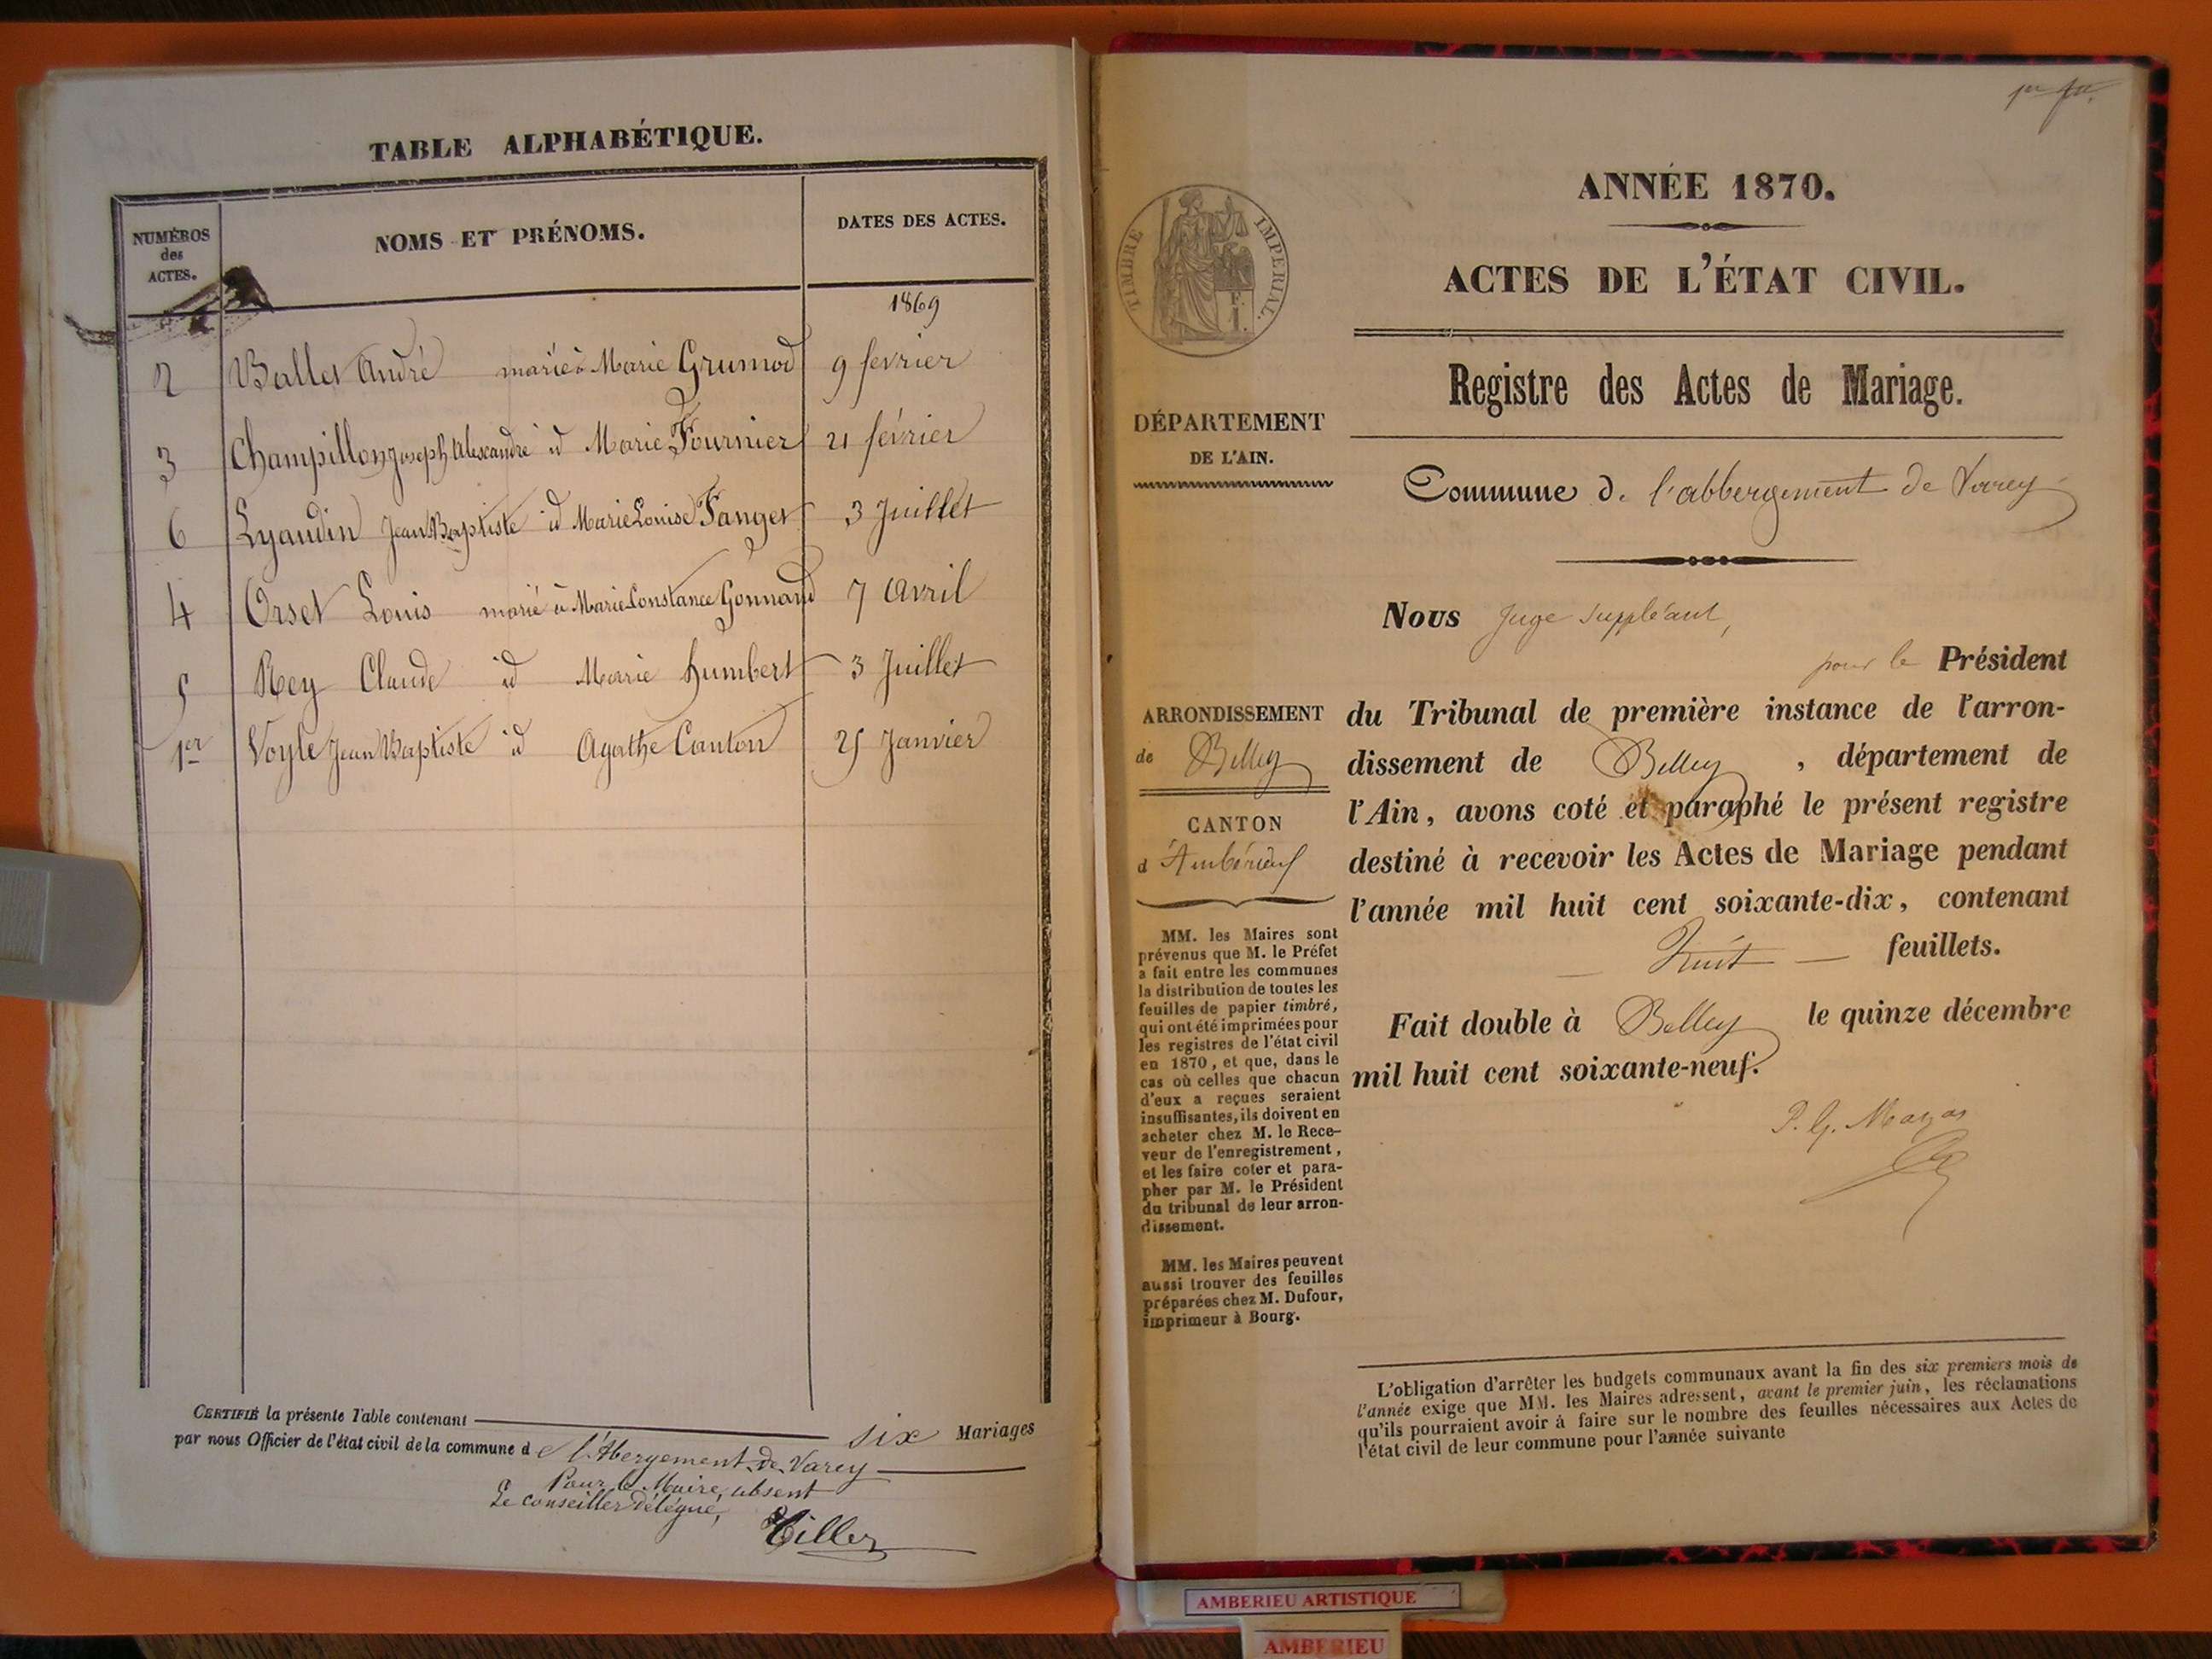 TABLE ALPHABÉTIQUE.
NUMÉROS des ACTES.
NOMS ET PRÉNOMS.
DATES DES ACTES.
1869
2 Ballet André marié à Marie Grumod 9 fevrier
3 Champillon Joseph Alexandre id Marie Fournier 21 février
6 Lyaudin Jean Baptiste id Marie Louise Fanget 3 Juillet
4 Orset Louis marié à Marie Constance Gonnand 7 avril
5 Rey Claude id Marie humbert 3 Juillet
1er Voyle Jean Baptiste id Agathe Canton 25 Janvier
CERTIFIÉ la présente Table contenant six Mariages
par nous Officier de l'état civil de la commune d e l'Abergement-de-Varey
Pour le Maire, absent
Le conseiller délégué,
1er
ANNÉE 1870.
ACTES DE L'ÉTAT CIVIL.
TIMBRE IMPERIAL.
F.
I.
Registre des Actes de Mariage.
DÉPARTEMENT
DE L'AIN.
Commune de l'abbergement de Varey
Nous Juge suppléant,
pour le Président
ARRONDISSEMENT
de Belley
CANTON
d'Ambérieux
du Tribunal de première instance de l'arron-
dissement de Belley, département de
l'Ain, avons coté et paraphé le présent registre
destiné à recevoir les Actes de Mariage pendant
l'année mil huit cent soixante-dix, contenant
— huit — feuillets.
Fait double à Belley le quinze décembre
mil huit cent soixante-neuf.
MM. les Maires sont
prévenus que M. le Préfet
a fait entre les communes
la distribution de toutes les
feuilles de papier timbré,
qui ont été imprimées pour
les registres de l'état civil
en 1870, et que, dans le
cas où celles que chacun
d'eux a reçues seraient
insuffisantes, ils doivent en
acheter chez M. le Rece-
veur de l'enregistrement,
et les faire coter et para-
pher par M. le Président
du tribunal de leur arron-
dissement.
MM. les Maires peuvent
aussi trouver des feuilles
préparées chez M. Dufour,
imprimeur à Bourg.
L'obligation d'arrêter les budgets communaux avant la fin des six premiers mois de
l'année exige que MM. les Maires adressent, avant le premier juin, les réclamations
qu'ils pourraient avoir à faire sur le nombre des feuilles nécessaires aux Actes de
l'état civil de leur commune pour l'année suivante
AMBERIEU ARTISTIQUE
AMBERIEU